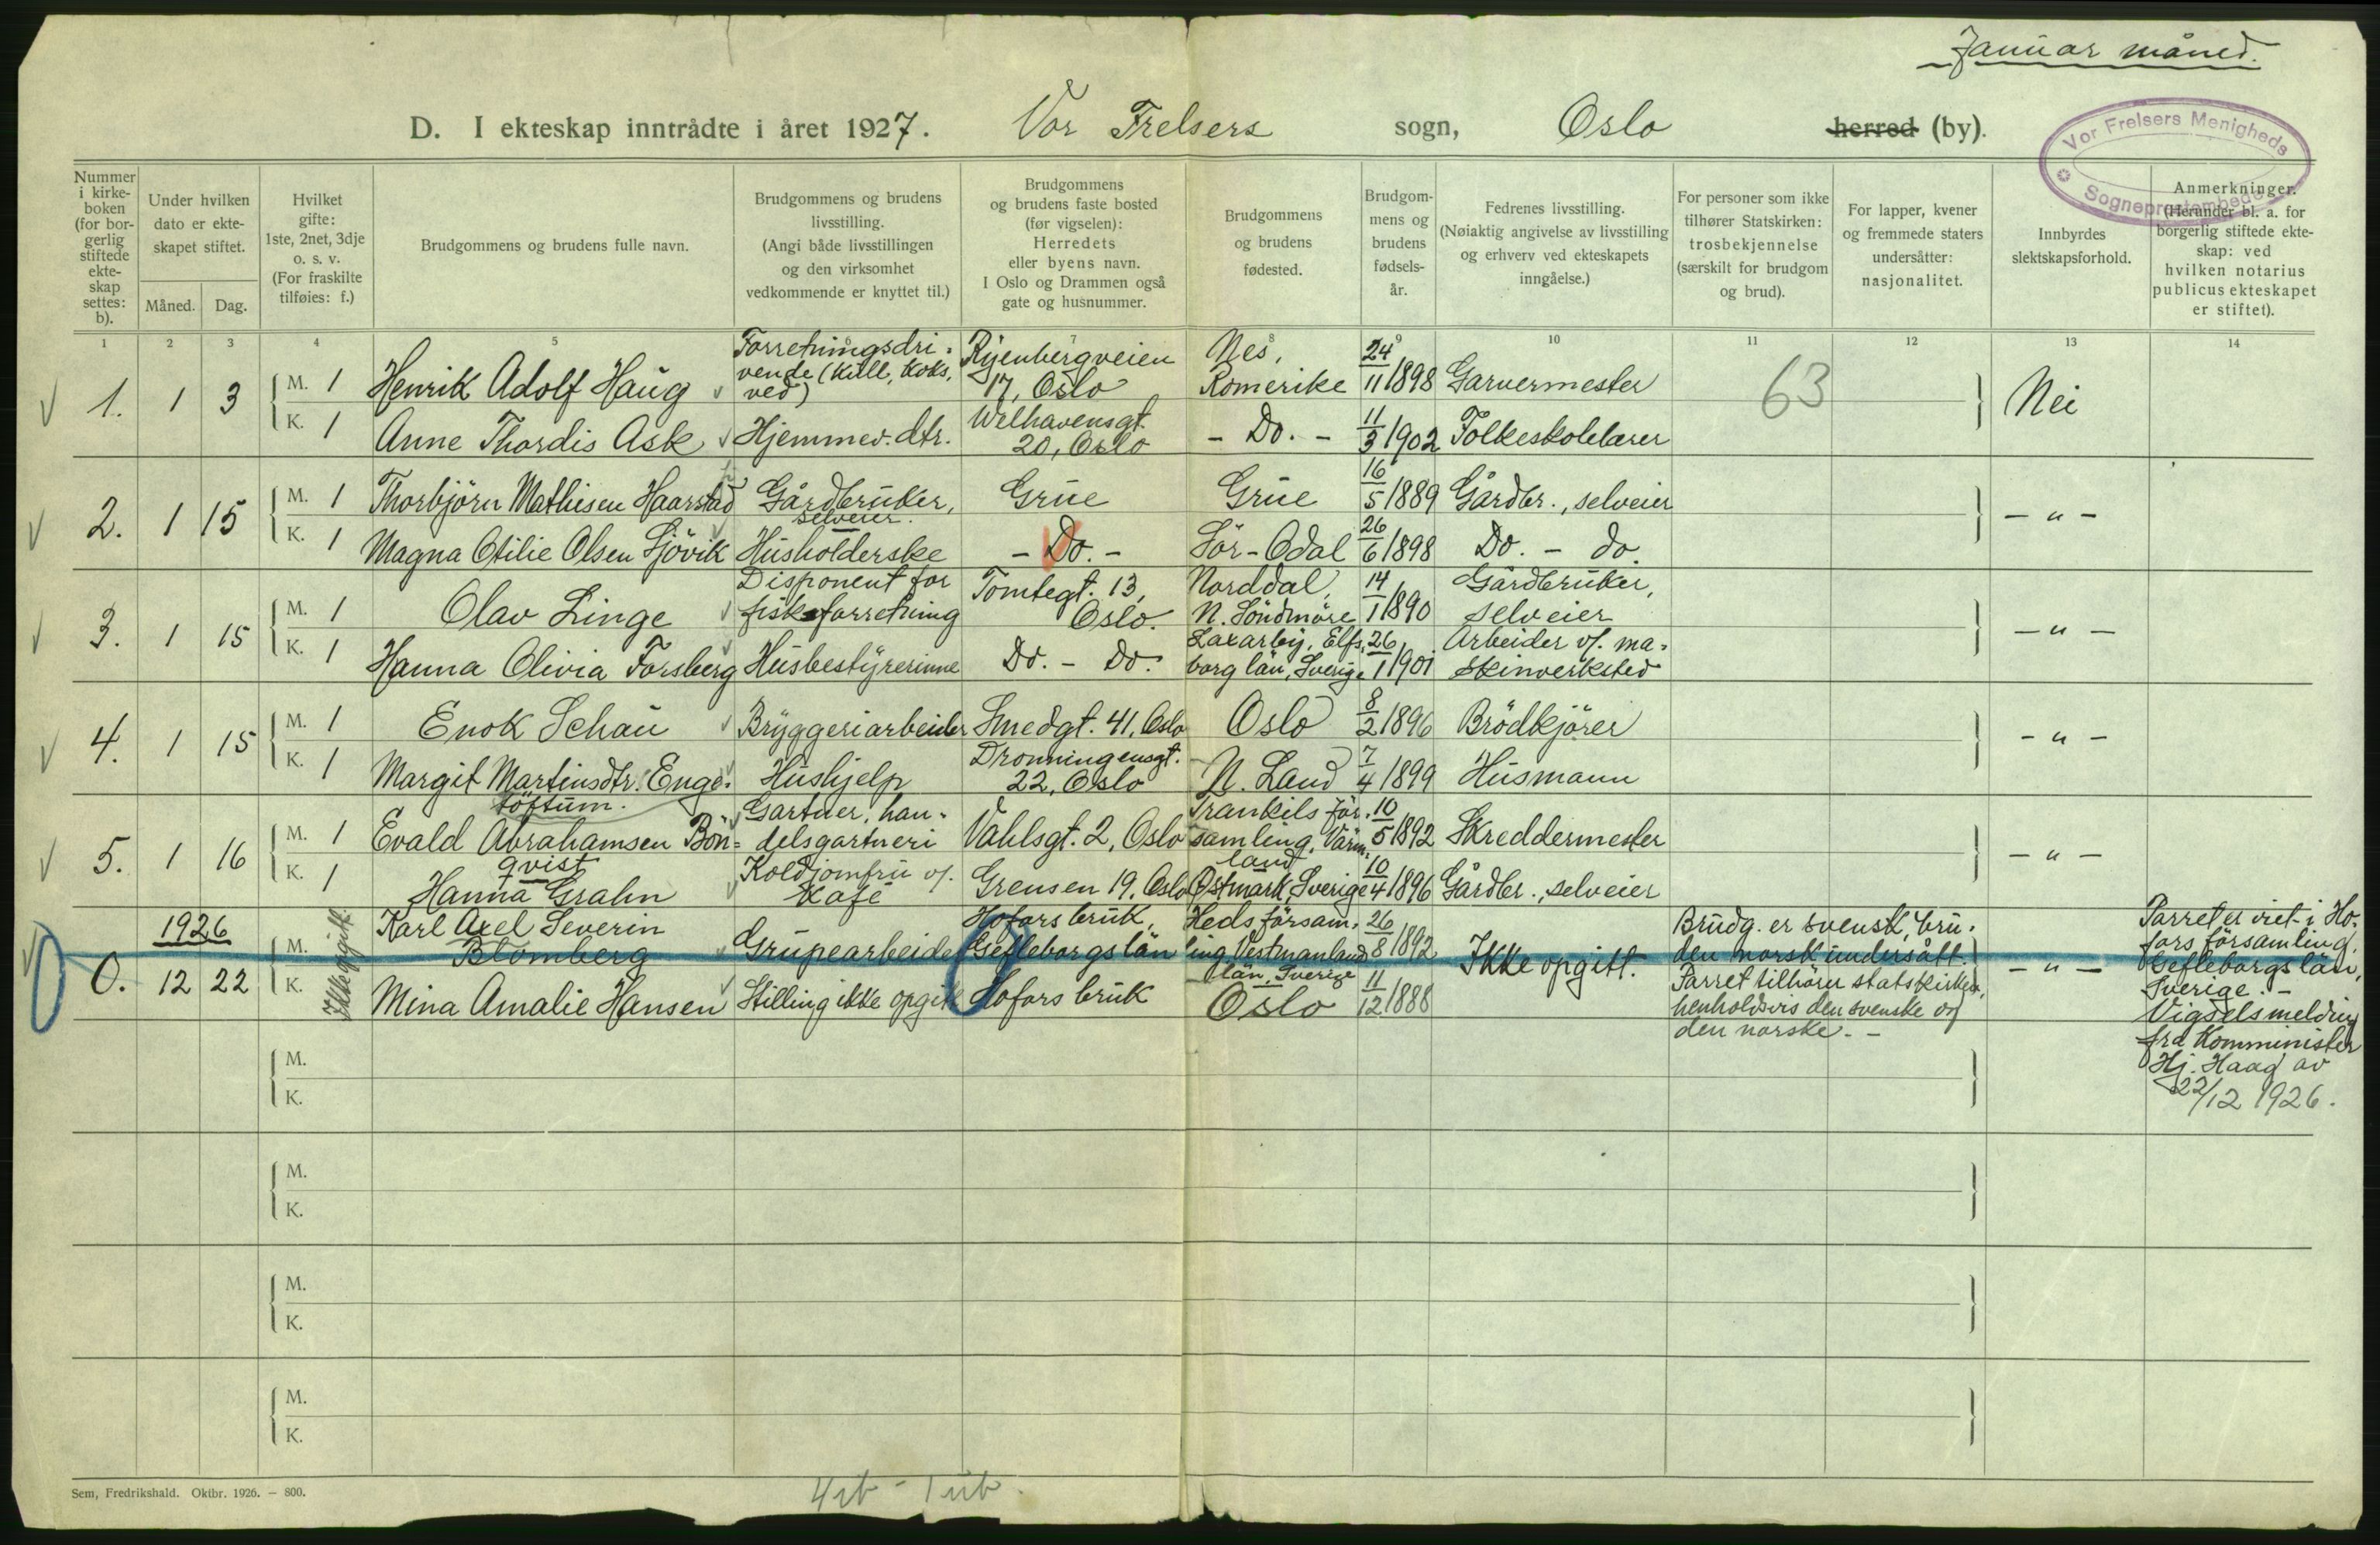 Januar måned.
D. I ekteskap inntrådte i året 1927. Vor Frelsers sogn, Oslo herred (by).
Vor Frelsers Menigheds
Sogneprestembede
Nummer i kirke-boken (for bor-gerlig stiftede ekte-skap settes: b).
Under hvilken dato er ekte-skapet stiftet.
Måned. Dag.
Hvilket gifte: 1ste, 2net, 3dje o. s. v. (For fraskilte tilføies: f.)
Brudgommens og brudens fulle navn.
Brudgommens og brudens livsstilling. (Angi både livsstillingen og den virksomhet vedkommende er knyttet til.)
Brudgommens og brudens faste bosted (før vigselen): Herredets eller byens navn. I Oslo og Drammen også gate og husnummer.
Brudgommens og brudens fødested.
Brudgom-mens og brudens fødsels-år.
Fedrenes livsstilling. (Nøiaktig angivelse av livsstilling og erhverv ved ekteskapets inngåelse.)
For personer som ikke tilhører Statskirken: trosbekjennelse (særskilt for brudgom og brud).
For lapper, kvener og fremmede staters undersåtter: nasjonalitet.
Innbyrdes slektskapsforhold.
Anmerkninger. (Herunder bl. a. for borgerlig stiftede ekte-skap: ved hvilken notarius publicus ekteskapet er stiftet).
1 2 3 4 5 6 7 8 9 10 11 12 13 14
1. 1 3 M. 1 Henrik Adolf Haug Forretningsdri-vende (kull, koks, ved) Ryenbergveien 17, Oslo Nes, Romerike 24/11 1898 Garvermester 63 Nei
K. 1 Anne Thordis Ask Hjemmev. dtr. Welhavensgt. 20, Oslo - Do. - 11/3 1902 Folkeskolelærer
2. 1 15 M. 1 Thorbjörn Mathisen Haarstad Gårdbruker, selveier. Grue Grue 16/5 1889 Gårdbr., selveier - " -
K. 1 Magna Otilie Olsen Sjövik Husholderske - Do. - Sör-Odal 26/6 1898 Do. - do.
3. 1 15 M. 1 Olav Linge Disponent for fiskeforretning Tomtegt. 13, Oslo. Norddal, N. Söndmöre 14/1 1890 Gårdbruker, selveier - " -
K. 1 Hanna Olivia Forsberg Husbestyrerinne Do. - Do. Laxarby, Elfs-borg län, Sverige 26/1 1901 Arbeider v/. ma-skinverksted
4. 1 15 M. 1 Enok Schau Bryggeriarbeider Smedgt. 41, Oslo Oslo 8/2 1896 Brödkjörer - " -
K. 1 Margit Martinsdtr. Enge-töftum. Hushjelp Dronningensgt. 22, Oslo N. Land 7/4 1899 Husmann
5. 1 16 M. 1 Evald Abrahamsen Bön-qvist Gartner, han-delsgartneri Vahlsgt. 2, Oslo Trankils för-samling, Värm-land 10/5 1892 Skreddermester - " -
K. 1 Hanna Grahn Koldjomfru v/. Kafé Grensen 19, Oslo Östmark, Sverige 10/4 1896 Gårdbr., selveier
1926
0. 12 22 Ikke opgitt. M. Karl Axel Severin Blomberg Grupearbeider Hofors bruk, Gefleborgs län Heds försam-ling, Vestmanlands län, Sverige 26/8 1892 Ikke opgitt. Brudg. er svensk, bru-den norsk undersått. Parret tilhører statskirken, henholdsvis den svenske og den norske. - - " - Parret er viet i Ho-fors församling, Gefleborgs län, Sverige. - Vigselsmelding fra Komminister Hj. Haag av 22/12 1926.
K. Mina Amalie Hansen Stilling ikke opgitt Hofors bruk Oslo 11/12 1888
M.
K.
M.
K.
M.
K.
M.
K.
Sem, Fredrikshald. Oktbr. 1926. — 800.